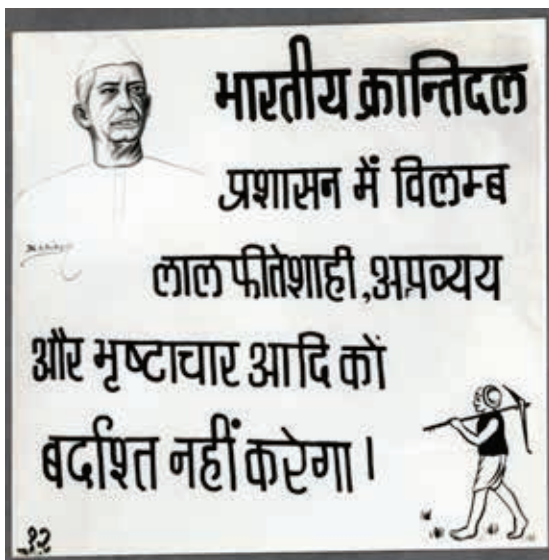 भारतीय क्रान्तिदल
प्रशासन में विलम्ब
लाल फीतेशाही, अपव्यय
और भृष्टाचार आदि कों
बर्दाश्त नहीं करेगा।
१२